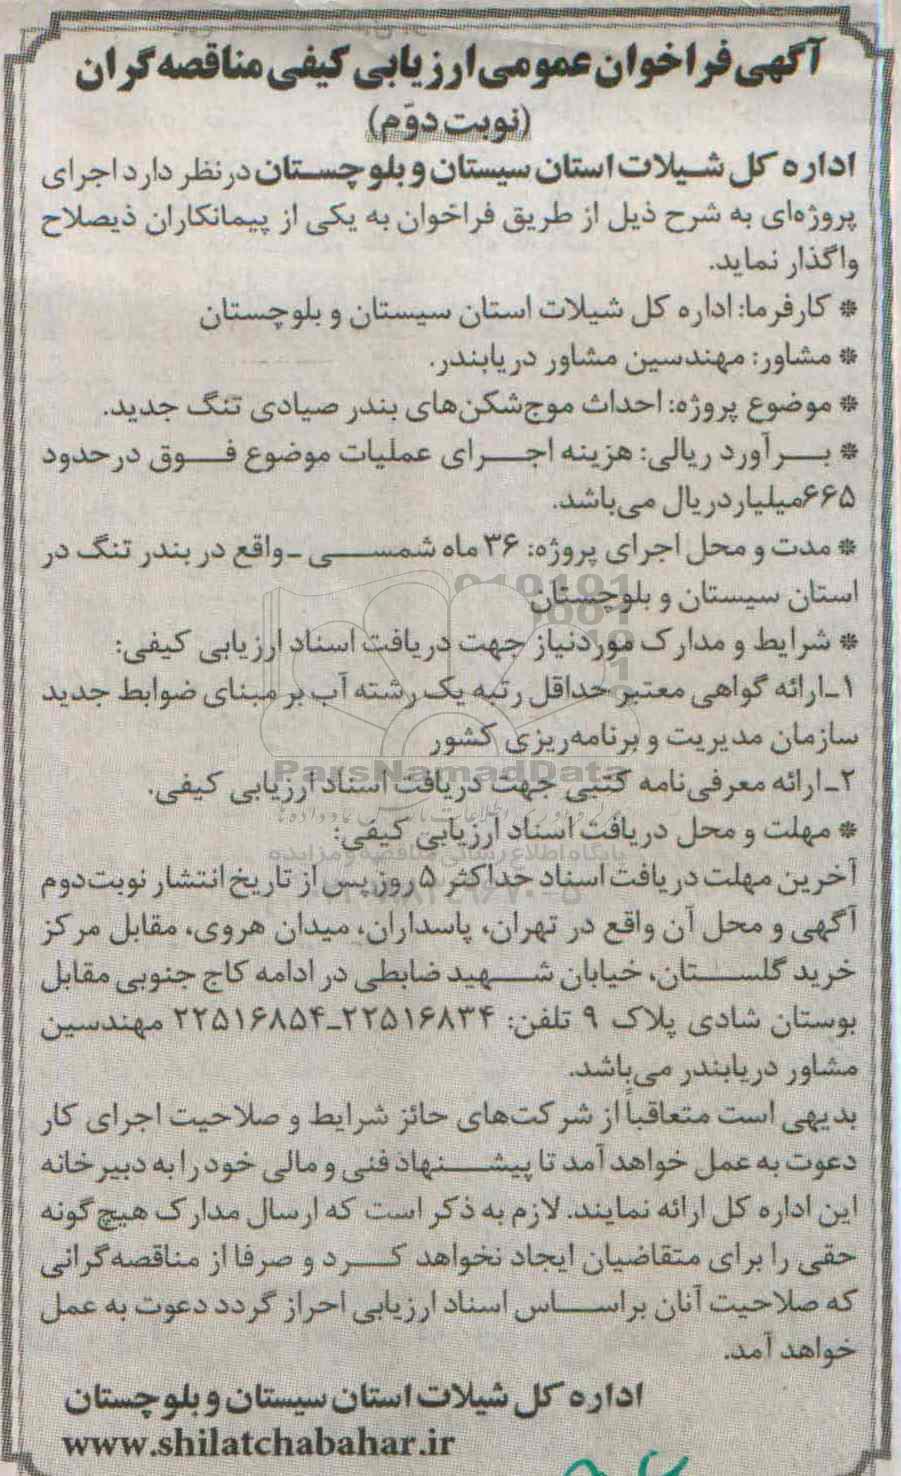 آگهی فراخوان عمومی ارزیابی کیفی مناقصه‌گران
(نوبت دوّم)
اداره کل شیلات استان سیستان و بلوچستان در نظر دارد اجرای
پروژه‌ای به شرح ذیل از طریق فراخوان به یکی از پیمانکاران ذیصلاح
واگذار نماید.
* کارفرما: اداره کل شیلات استان سیستان و بلوچستان
* مشاور: مهندسین مشاور دریابندر.
* موضوع پروژه: احداث موج‌شکن‌های بندر صیادی تنگ جدید.
* برآورد ریالی: هزینه اجرای عملیات موضوع فوق در حدود
۶۶۵میلیارد ریال می‌باشد.
* مدت و محل اجرای پروژه: ۳۶ ماه شمسی ـ واقع در بندر تنگ در
استان سیستان و بلوچستان
* شرایط و مدارک موردنیاز جهت دریافت اسناد ارزیابی کیفی:
۱ـ ارائه گواهی معتبر حداقل رتبه یک رشته آب بر مبنای ضوابط جدید
سازمان مدیریت و برنامه‌ریزی کشور
ParsNamadData
۲ـ ارائه معرفی‌نامه کتبی جهت دریافت اسناد ارزیابی کیفی.
* مهلت و محل دریافت اسناد ارزیابی کیفی:
پایگاه اطلاع رسانی مناقصه و مزایده
آخرین مهلت دریافت اسناد حداکثر ۵ روز پس از تاریخ انتشار نوبت دوم
آگهی و محل آن واقع در تهران، پاسداران، میدان هروی، مقابل مرکز
خرید گلستان، خیابان شهید ضابطی در ادامه کاج جنوبی مقابل
بوستان شادی پلاک ۹ تلفن: ۲۲۵۱۶۸۳۴ـ۲۲۵۱۶۸۵۴ مهندسین
مشاور دریابندر می‌باشد.
بدیهی است متعاقباً از شرکت‌های حائز شرایط و صلاحیت اجرای کار
دعوت به عمل خواهد آمد تا پیشنهاد فنی و مالی خود را به دبیرخانه
این اداره کل ارائه نمایند. لازم به ذکر است که ارسال مدارک هیچ‌گونه
حقی را برای متقاضیان ایجاد نخواهد کرد و صرفا از مناقصه‌گرانی
که صلاحیت آنان براساس اسناد ارزیابی احراز گردد دعوت به عمل
خواهد آمد.
اداره کل شیلات استان سیستان و بلوچستان
www.shilatchabahar.ir